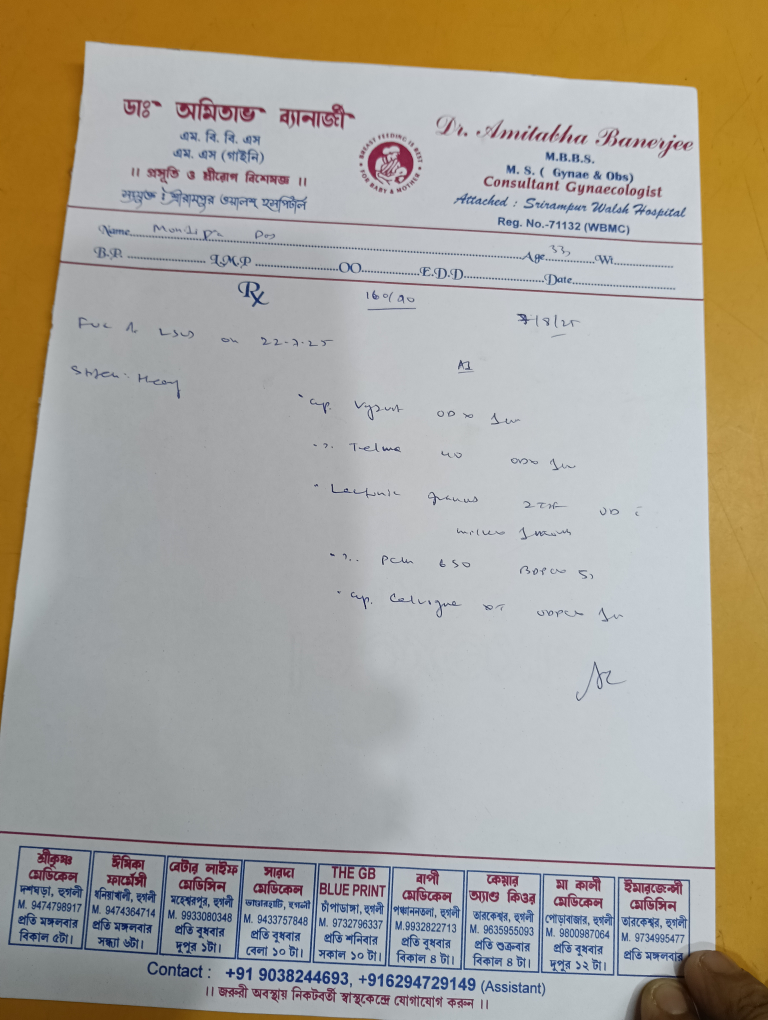 ডাঃ অমিতাভ ব্যানার্জী
এম. বি. বি. এস
এম. এস (গাইনি)
।। প্রসূতি ও স্ত্রীরোগ বিশেষজ্ঞ ।।
সংযুক্ত : শ্রীরামপুর ওয়ালশ হসপিটাল
BREAST FEEDING IS BEST
FOR BABY & MOTHER
Dr. Amitabha Banerjee
M.B.B.S.
M. S. ( Gynae & Obs)
Consultant Gynaecologist
Attached : Srirampur Walsh Hospital
Reg. No.-71132 (WBMC)
Name Age 33 Wt.
B.P. L.M.P. OO E.D.D. Date
Rx
160/90
7/8/25
on 22-7-25
A1
cap. OD x
Telma 40 OD x
granules OD
PCM 650 5
cap. DT
শ্রীকৃষ্ণ
মেডিকেল
দশঘড়া, হুগলী
M. 9474798917
প্রতি মঙ্গলবার
বিকাল ৫টা।
ঈষিকা
ফার্মেসী
ধনিয়াখালী, হুগলী
M. 9474364714
প্রতি মঙ্গলবার
সন্ধ্যা ৬টা।
বেটার লাইফ
মেডিসিন
মহেশ্বরপুর, হুগলী
M. 9933080348
প্রতি বুধবার
দুপুর ১টা।
সারদা
মেডিকেল
হুগলী
M. 9433757848
প্রতি বুধবার
বেলা ১০ টা।
THE GB
BLUE PRINT
চাঁপাডাঙ্গা, হুগলী
M. 9732796337
প্রতি শনিবার
সকাল ১০ টা।
বাপী
মেডিকেল
পঞ্চাননতলা, হুগলী
M.9932822713
প্রতি বুধবার
বিকাল ৪ টা।
কেয়ার
অ্যান্ড কিওর
তারকেশ্বর, হুগলী
M. 9635955093
প্রতি শুক্রবার
বিকাল ৪ টা।
মা কালী
মেডিকেল
পোড়াবাজার, হুগলী
M. 9800987064
প্রতি বুধবার
দুপুর ১২ টা।
ইমারজেন্সী
মেডিসিন
তারকেশ্বর, হুগলী
M. 9734995477
প্রতি মঙ্গলবার
Contact : +91 9038244693, +916294729149 (Assistant)
।। জরুরী অবস্থায় নিকটবর্তী স্বাস্থ্যকেন্দ্রে যোগাযোগ করুন ।।